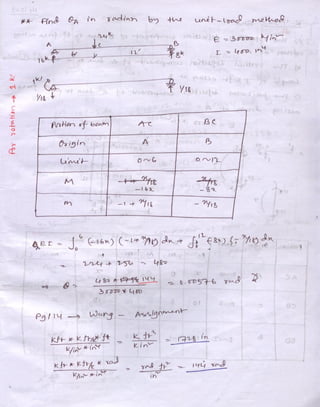 ** Find θA in radian by the unit-load method.
24k
E = 30000 k/in²
A
C
B
I = 400 in⁴
6'
12'
16k
8k
1k'
1/18
1/18
for rotation → 1k'
Portion of beam
AC
BC
Origin
A
B
Limit
0~6
0~12
M
-16x
-8x
m
-1 + x/18
-x/18
θEI = ∫₀⁶ (-16x)(-1+x/18) dx + ∫₀¹² (-8x)(-x/18) dx
= 224 + 256 = 480
⇒ θ = 480 * 144
30000 * 400
= 0.00576 rad
Pg/114 → Wrong - Assignment
k/in² * in⁴
k ft³
k in²
= 1728 in
k/in² * in⁴
rad ft²
in²
= 144 rad